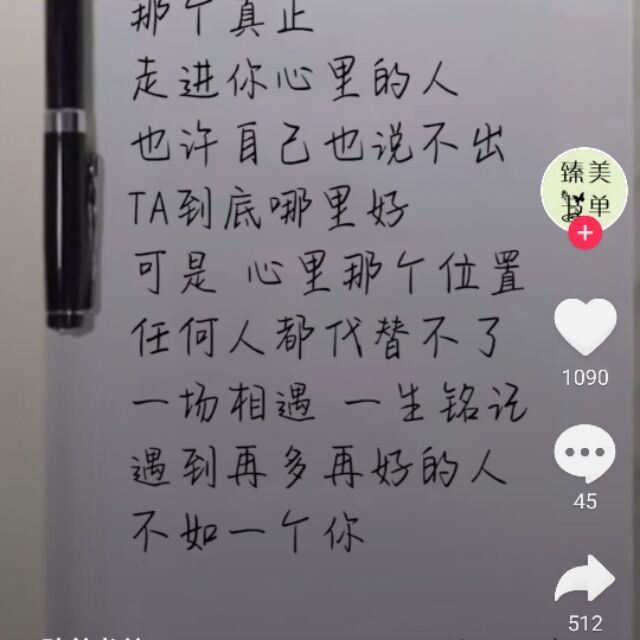 那个真正
走进你心里的人
也许自己也说不出
TA到底哪里好
可是 心里那个位置
任何人都代替不了
一场相遇 一生铭记
遇到再多再好的人
不如一个你
臻美
单
1090
45
512